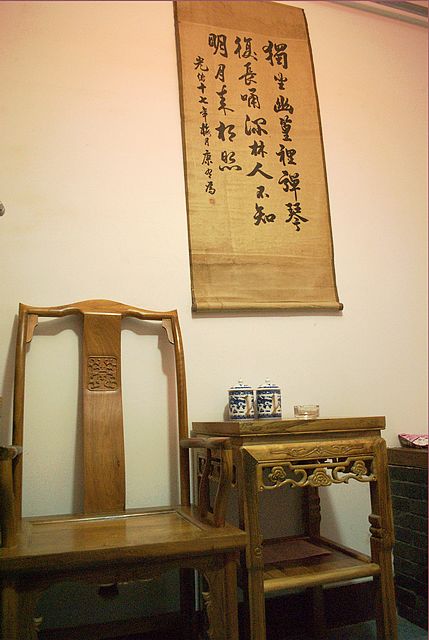 獨坐幽篁裡彈琴
復長嘯深林人不知
明月来相照
光緒十七年月康有為